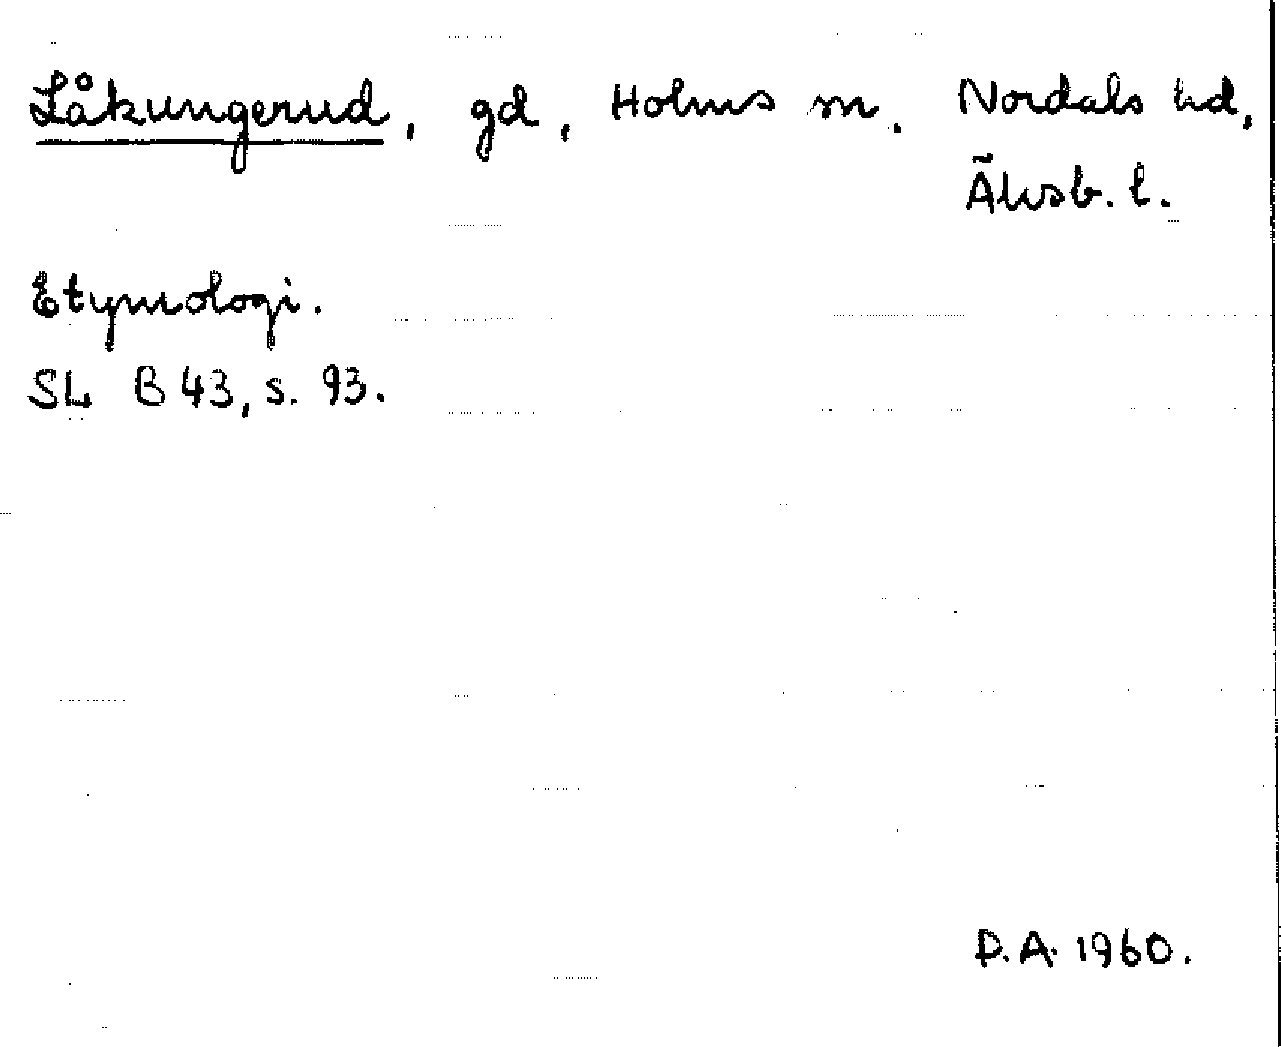 Låkungerud, gd, Holms sn. Nordals hd,
Älvsb. l.
Etymologi.
SL B 43, s. 93.
D.A. 1960.